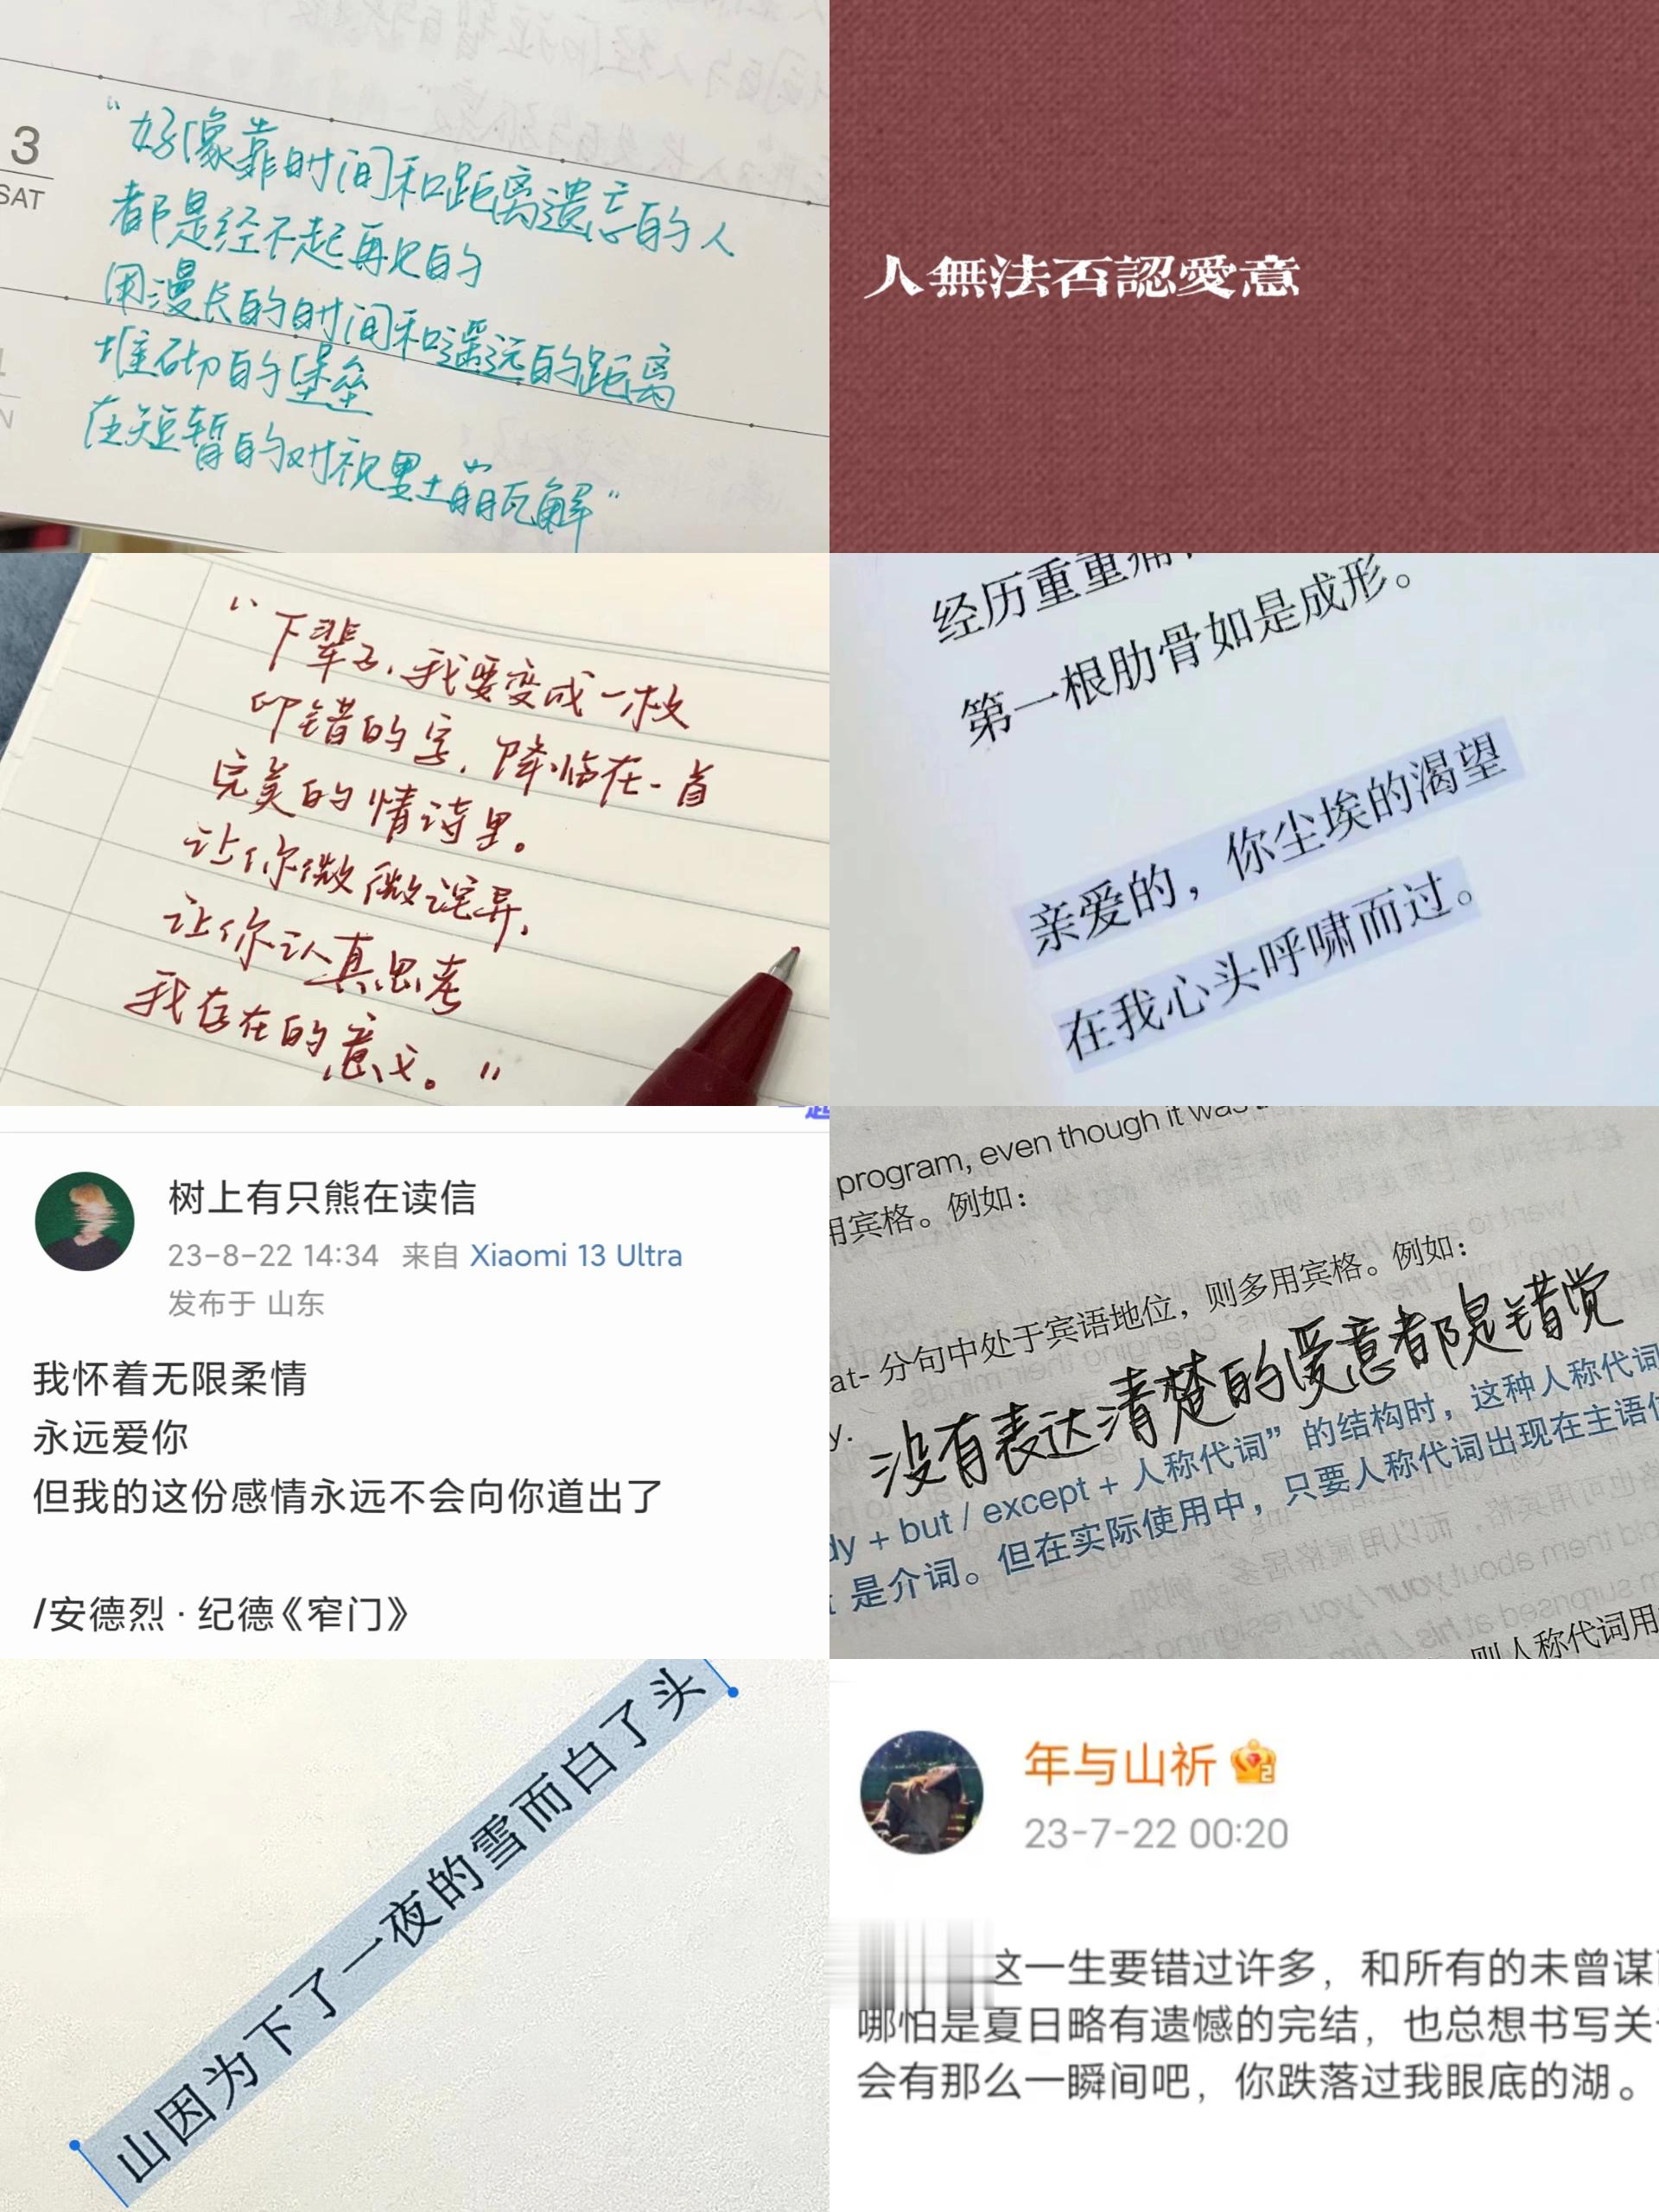 3
SAT
“好像靠时间和距离遗忘的人
都是经不起再见的
用漫长的时间和遥远的距离
堆砌的堡垒
在短暂的对视里土崩瓦解”
N
人無法否認愛意
“下辈子，我要变成一枚
印错的字，降临在一首
完美的情诗里。
让你微微诧异，
让你认真思考
我存在的意义。”
经历重重痛
第一根肋骨如是成形。
亲爱的，你尘埃的渴望
在我心头呼啸而过。
树上有只熊在读信
23-8-22 14:34 来自 Xiaomi 13 Ultra
发布于 山东
我怀着无限柔情
永远爱你
但我的这份感情永远不会向你道出了
/安德烈·纪德《窄门》
program, even though it was
用宾格。例如：
at- 分句中处于宾语地位，则多用宾格。例如：
y.
没有表达清楚的爱意都是错觉
dy + but / except + 人称代词”的结构时，这种人称代词
是介词。但在实际使用中，只要人称代词出现在主语位
则人称代词用
山因为下了一夜的雪而白了头
年与山祈
23-7-22 00:20
这一生要错过许多，和所有的未曾谋
哪怕是夏日略有遗憾的完结，也总想书写关
会有那么一瞬间吧，你跌落过我眼底的湖。